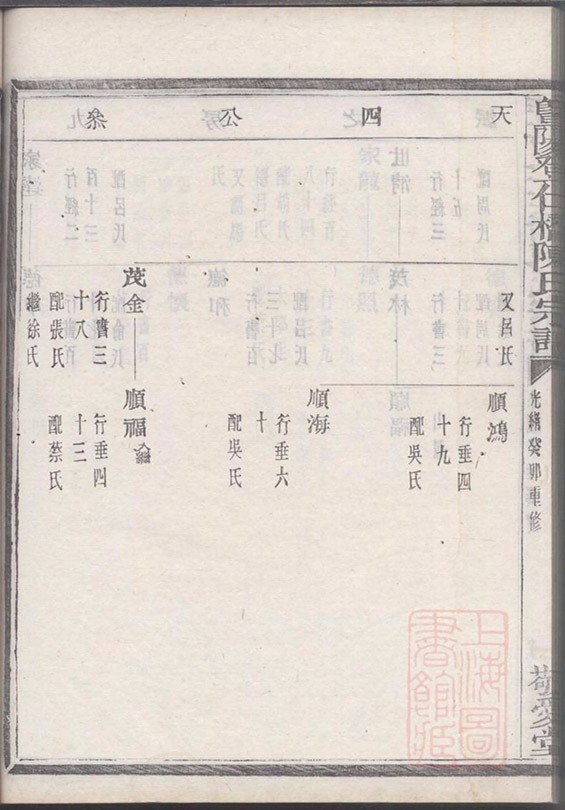 陽
石
陳氏宗譜
光緒癸卯重修
敬愛堂
天
四
公
叅
又呂氏
順鴻
行垂四
十九
配吳氏
順海
行垂六
十
配吳氏
茂金
行書三
十八
配張氏
繼徐氏
順福
行垂四
十三
配蔡氏
上海圖
書館藏